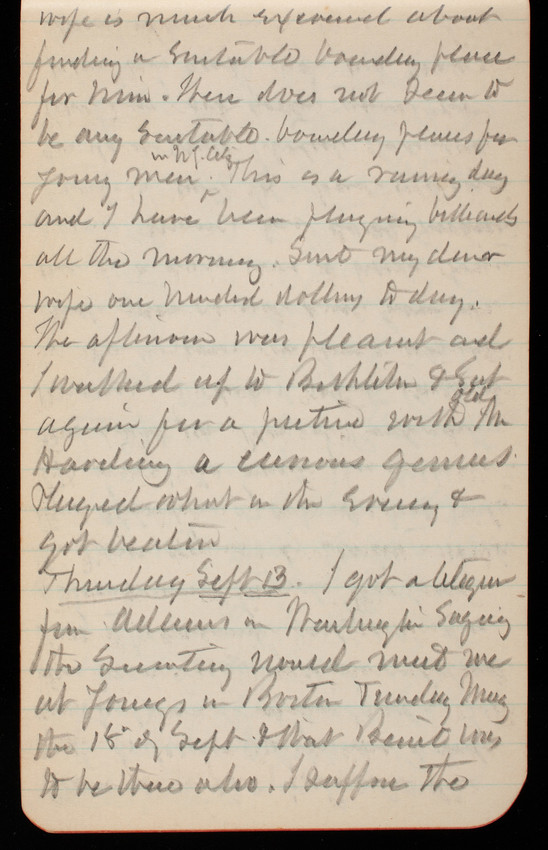 wife is much exercised about
finding a suitable boarding place
for him. There does not seem to
be any suitable boarding places for
young men in N.Y. City. This is a rainy day
and I have been playing billiards
all the morning. Sent my dear
wife one hundred dollars to day.
The afternoon was pleasant and
I walked up to Bethlehem & sat
again for a picture with old Mr
Harding a curious genius.
Played whist in the evening &
got beaten
Thursday Sept 13. I got a telegram
from in Washington saying
the Secretary would meet me
at Youngs in Boston Tuesday
the 18 of Sept & that was
to be there also. I suppose the